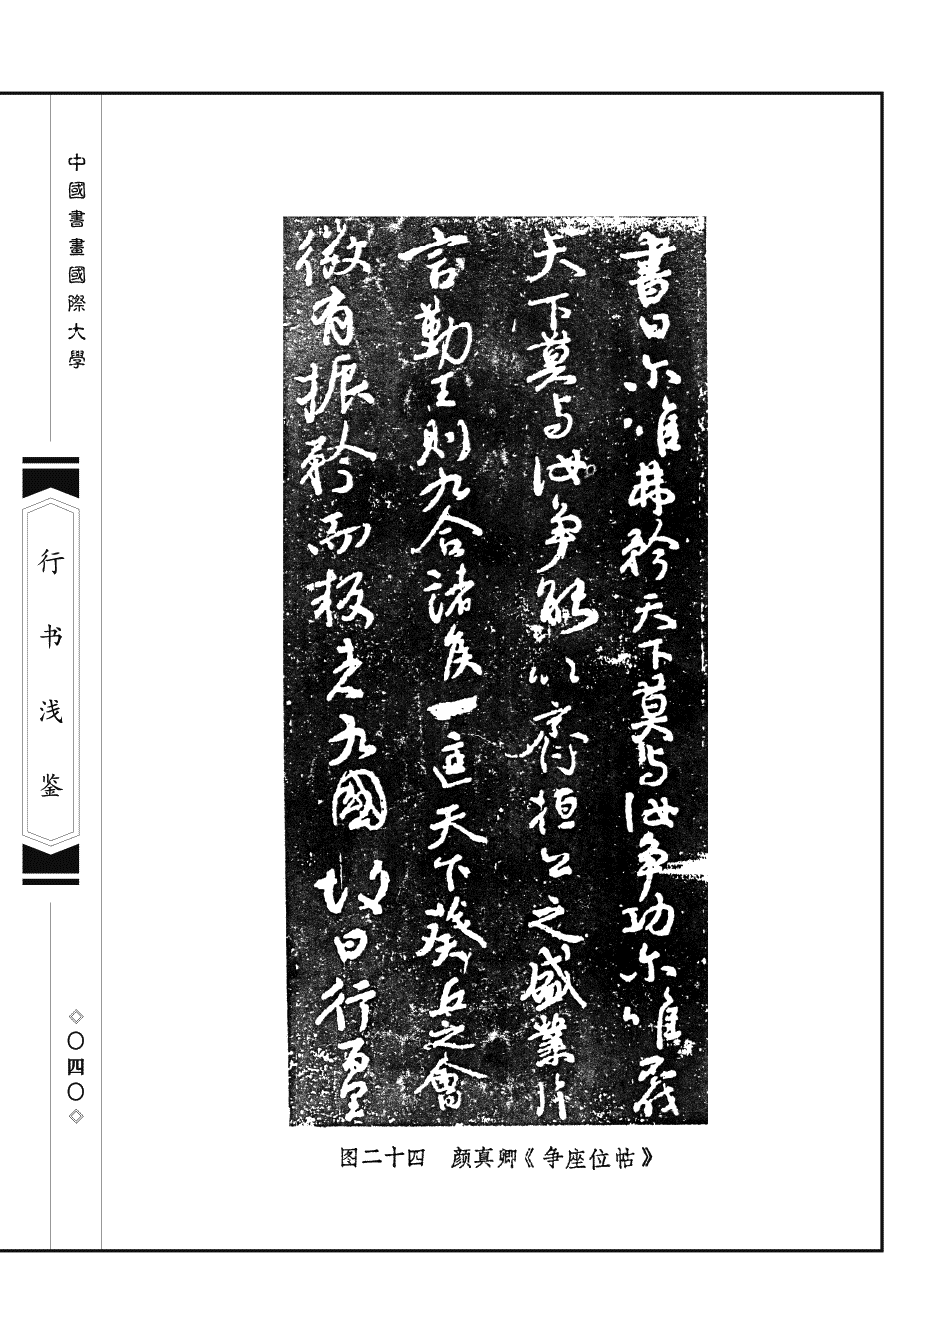 中國書畫國際大學
行书浅鉴
〇四〇
書曰尔唯弗矜天下莫与汝争功尔唯不伐
天下莫与汝争能以齊桓公之盛業片
言勤王則九合諸侯一匡天下葵丘之會
微有振矜而叛者九國故曰行百里
图二十四 颜真卿《争座位帖》